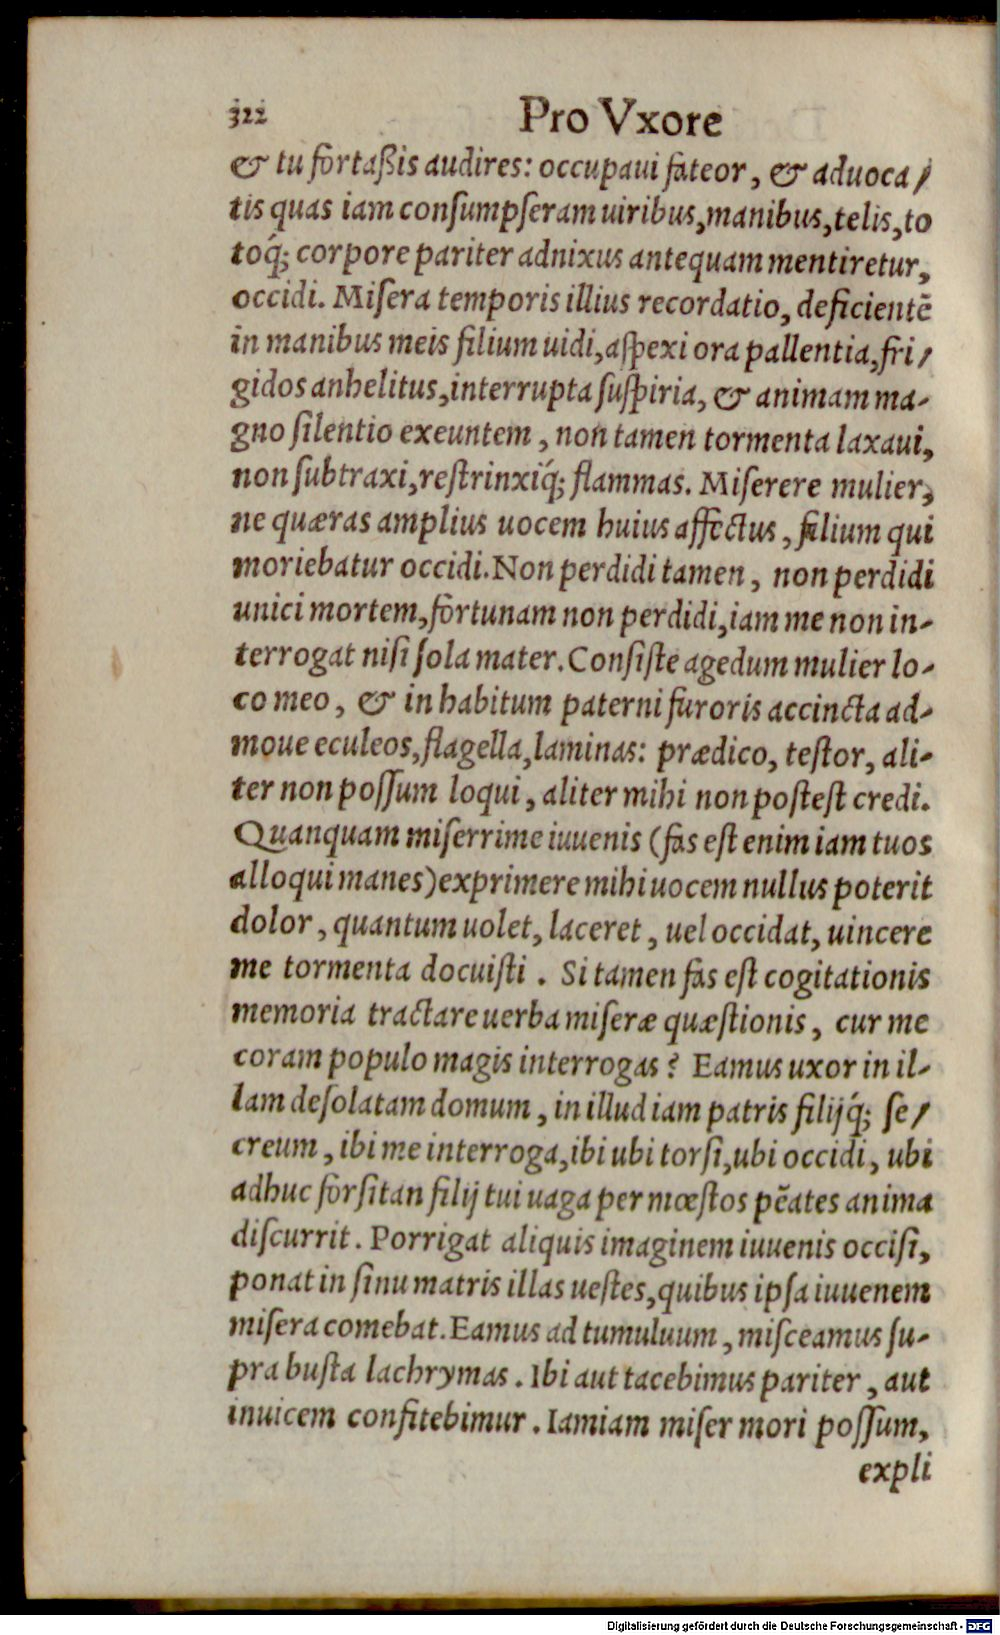 322 Pro Vxore
& tu fortaßis audires: occupaui fateor, & aduoca/
tis quas iam consumpseram uiribus, manibus, telis, to
toq́; corpore pariter adnixus antequam mentiretur,
occidi. Misera temporis illius recordatio, deficientẽ
in manibus meis filium uidi, aspexi ora pallentia, fri/
gidos anhelitus, interrupta suspiria, & animam ma-
gno silentio exeuntem, non tamen tormenta laxaui,
non subtraxi, restrinxiq́; flammas. Miserere mulier,
ne quæras amplius uocem huius affectus, filium qui
moriebatur occidi. Non perdidi tamen, non perdidi
unici mortem, fortunam non perdidi, iam me non in-
terrogat nisi sola mater. Consiste agedum mulier lo-
co meo, & in habitum paterni furoris accincta ad-
moue eculeos, flagella, laminas: prædico, testor, ali-
ter non possum loqui, aliter mihi non postest credi.
Quanquam miserrime iuuenis (fas est enim iam tuos
alloqui manes) exprimere mihi uocem nullus poterit
dolor, quantum uolet, laceret, uel occidat, uincere
me tormenta docuisti. Si tamen fas est cogitationis
memoria tractare uerba miseræ quæstionis, cur me
coram populo magis interrogas? Eamus uxor in il-
lam desolatam domum, in illud iam patris filijq́; se/
creum, ibi me interroga, ibi ubi torsi, ubi occidi, ubi
adhuc forsitan filij tui uaga per mœstos pẽates anima
discurrit. Porrigat aliquis imaginem iuuenis occisi,
ponat in sinu matris illas uestes, quibus ipsa iuuenem
misera comebat. Eamus ad tumuluum, misceamus su-
pra busta lachrymas. Ibi aut tacebimus pariter, aut
inuicem confitebimur. Iamiam miser mori possum,
expli
Digitalisierung gefördert durch die Deutsche Forschungsgemeinschaft - DFG